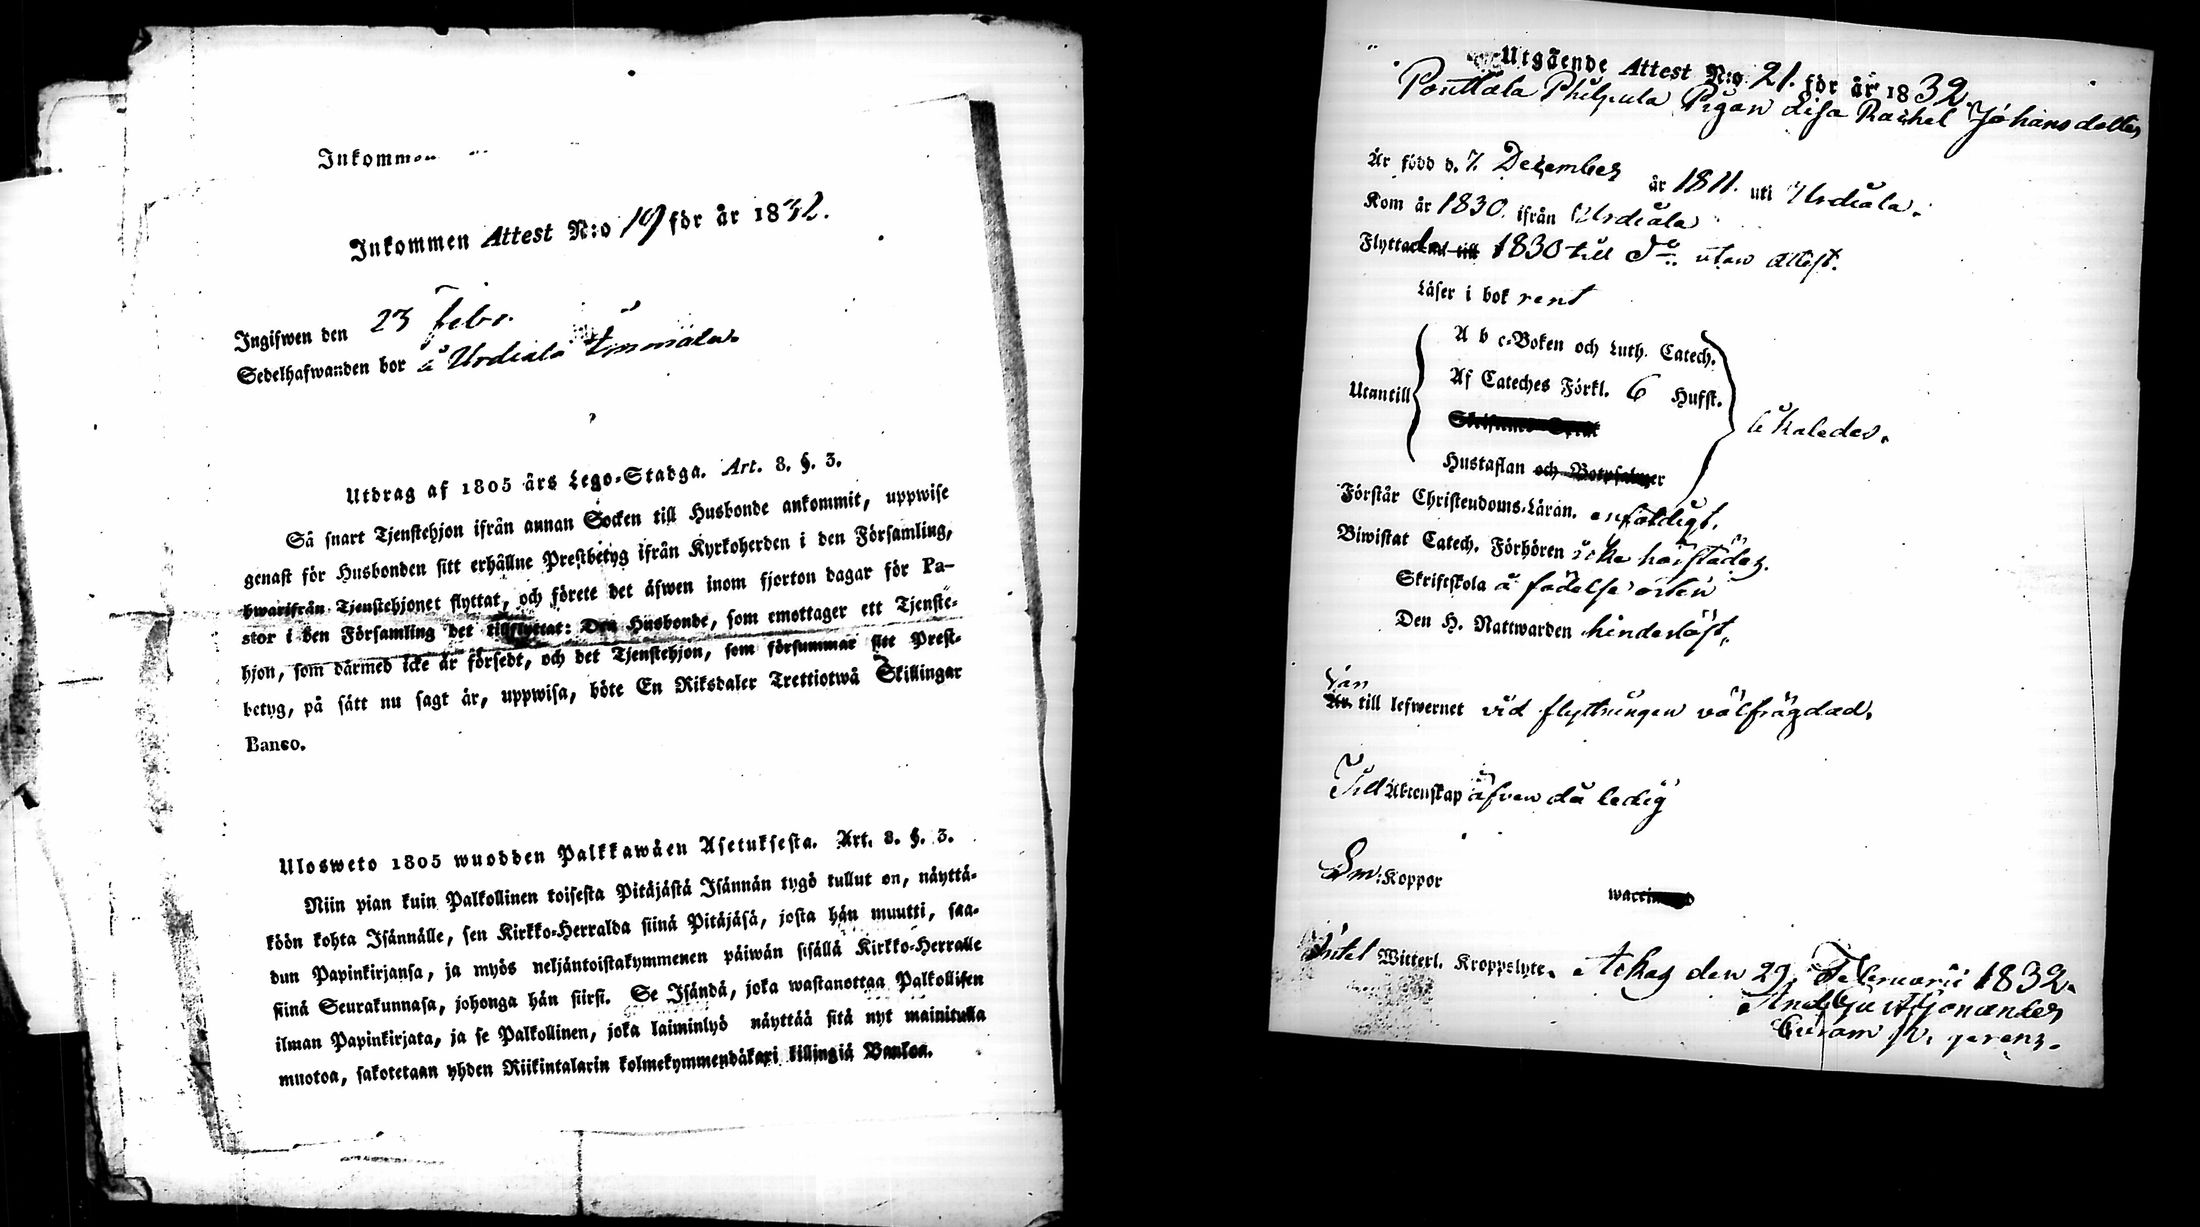 Inkommen
Inkommen Attest N:o 19 för år 1832.
Ingifwen den 23 Febr.
Sedelhafwanden bor å Urdiala
Utdrag af 1805 års Lego-Stadga. Art. 8. §. 3.
Så snart Tjenstehjon ifrån annan Socken till Husbonde ankommit, uppwise
genast för Husbonden sitt erhållne Prestbetyg ifrån Kyrkoherden i den Församling,
hwarifrån Tjenstehjonet flyttat, och förete det äfwen inom fjorton dagar för Pa-
stor i den Församling det tillflyttat: Den Husbonde, som emottager ett Tjenste-
hjon, som därmed icke är försedt, och det Tjenstehjon, som försummar sitt Prest-
betyg, på sätt nu sagt är, uppwisa, böte En Riksdaler Trettiotwå Skillingar
Banco.
Ulosweto 1805 wuodden Palkkawäen Asetuksesta. Art. 8. §. 3.
Niin pian kuin Palkollinen toisesta Pitäjästä Isännän tygö tullut on, näyttä-
köön kohta Isännälle, sen Kirkko-Herralda siinä Pitäjäsä, josta hän muutti, saa-
dun Papinkirjansa, ja myös neljäntoistakymmenen päiwän sisällä Kirkko-Herralle
siinä Seurakunnasa, johonga hän siirsi. Se Isändä, joka wastanottaa Palkollisen
ilman Papinkirjata, ja se Palkollinen, joka laiminlyö näyttää sitä nyt mainitulla
muotoa, sakotetaan yhden Riikintalarin kolmekymmendäkaxi killingiä Bankoa.
Utgående Attest N:o 21. för år 1832.
Ponttala Philpula Pigan Lisa Rachel Johansdotter
Är född d. 7. December år 1811. uti Urdiala.
Kom år 1830. ifrån Urdiala
Flyttade 1830 till Do. utan attest.
Läser i bok rent
Utantill
A b c-Boken och Luth. Catech.
Af Cateches Förkl. 6 Hufst.
Hustaflan och Botpsalmer
Förstår Christendoms-Läran. enfaldigt.
Biwistat Catech. Förhören icke härstädes.
Skriftskola å födelse orten
Den H. Nattwarden hinderlöst.
Var
Är till lefwernet vid flyttningen välfrägdad.
Till Äktenskap äfven då ledig
Sm: Koppor
Intet Witterl. Kroppslyte. Ackas den 29 Februarii 1832.